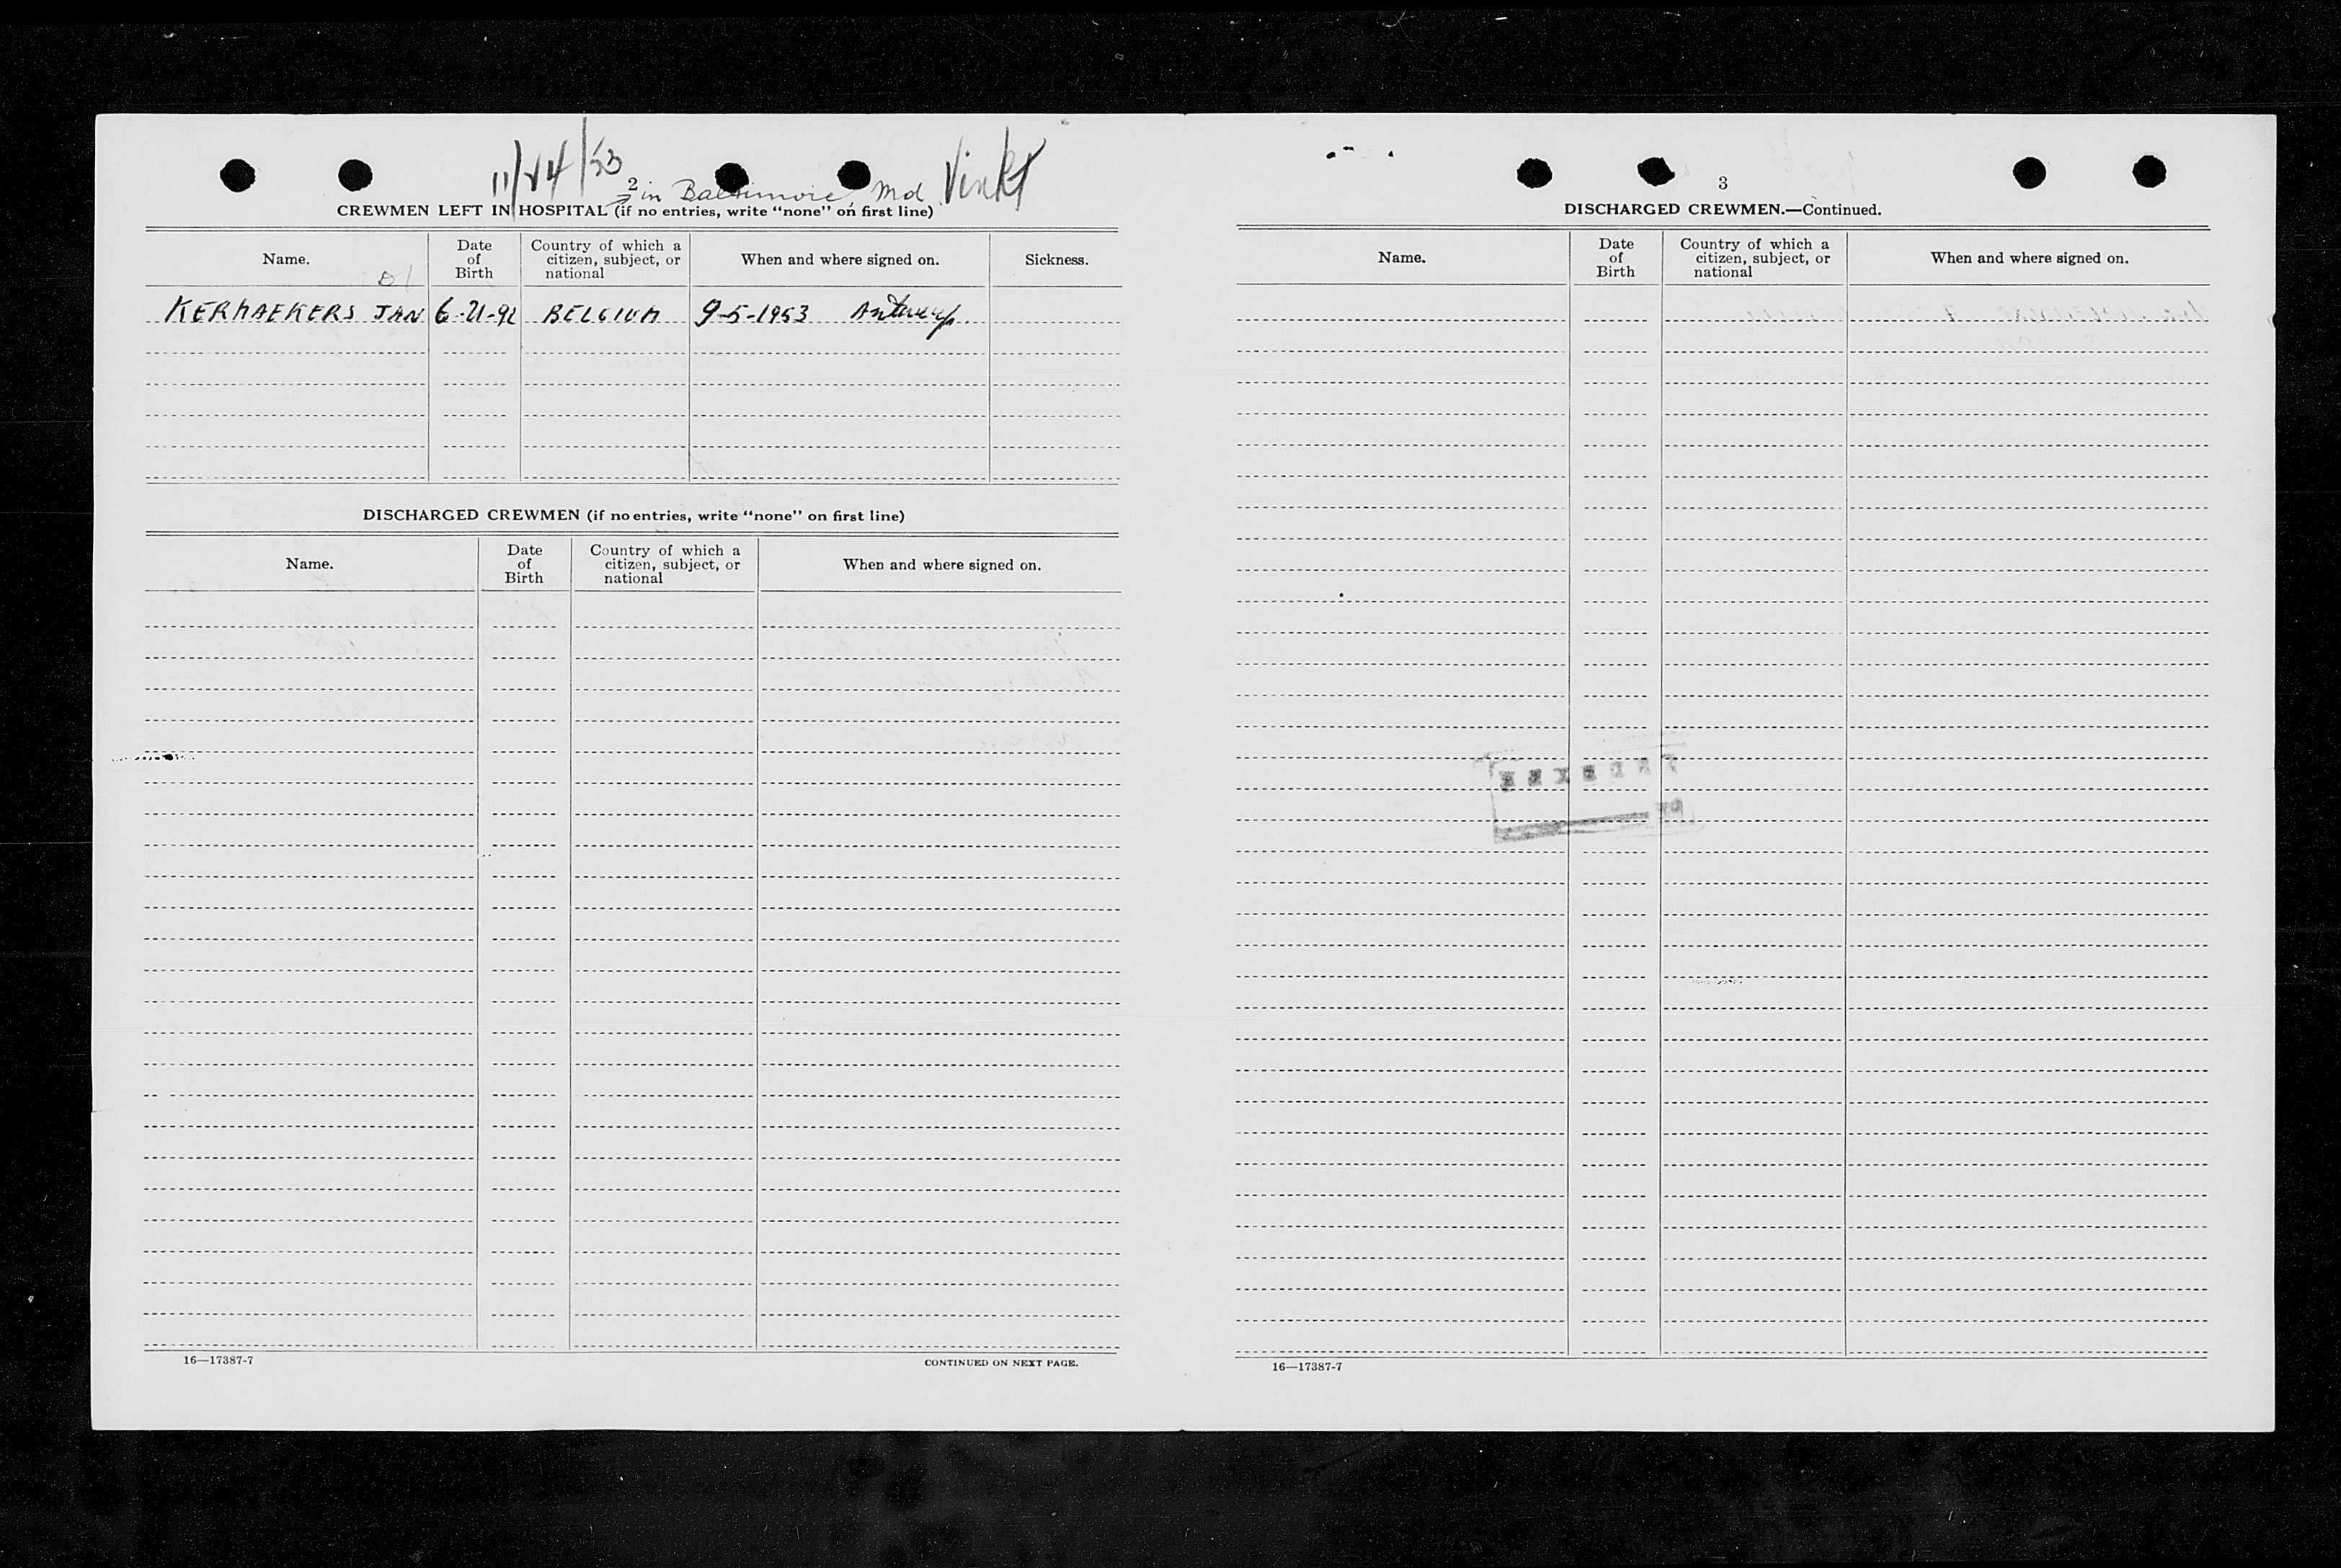 11/24/53
2
in Baltimore, Md.
CREWMEN LEFT IN HOSPITAL (if no entries, write “none” on first line)
Name.
Date of Birth
Country of which a citizen, subject, or national
When and where signed on.
Sickness.
KERMAEKERS JAN 6-21-92 BELGIUM 9-5-1953 Antwerp.
DISCHARGED CREWMEN (if no entries, write “none” on first line)
Name.
Date of Birth
Country of which a citizen, subject, or national
When and where signed on.
16—17387-7
CONTINUED ON NEXT PAGE.
3
DISCHARGED CREWMEN.—Continued.
Name.
Date of Birth
Country of which a citizen, subject, or national
When and where signed on.
16—17387-7